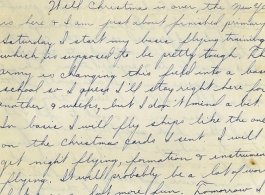 Well Christmas is over, the New Ye
is here & I am just about finished primary
Saturday I start my basic flying training
which is supposed to be pretty tough. The
army is changing this field into a basic
school so I guess I'll stay right here for
another 9 weeks, but I don't mind a bit.
In basic I will fly ships like the one
on the Christmas cards I sent. I will
get night flying, formation & instrument
flying. It will probably be a lot of work
lot more fun. Tomorrow